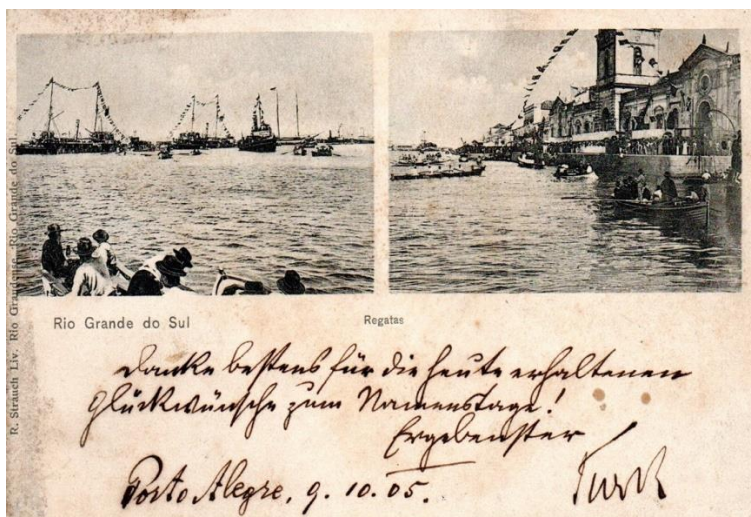 R. Strauch Liv. Rio Grandense Rio Grande do Sul.
Rio Grande do Sul
Regatas
Danke bestens für die heute erhaltenen
Glückwünsche zum Namenstage!
Ergebenster
Porto Alegre, 9. 10. 05.